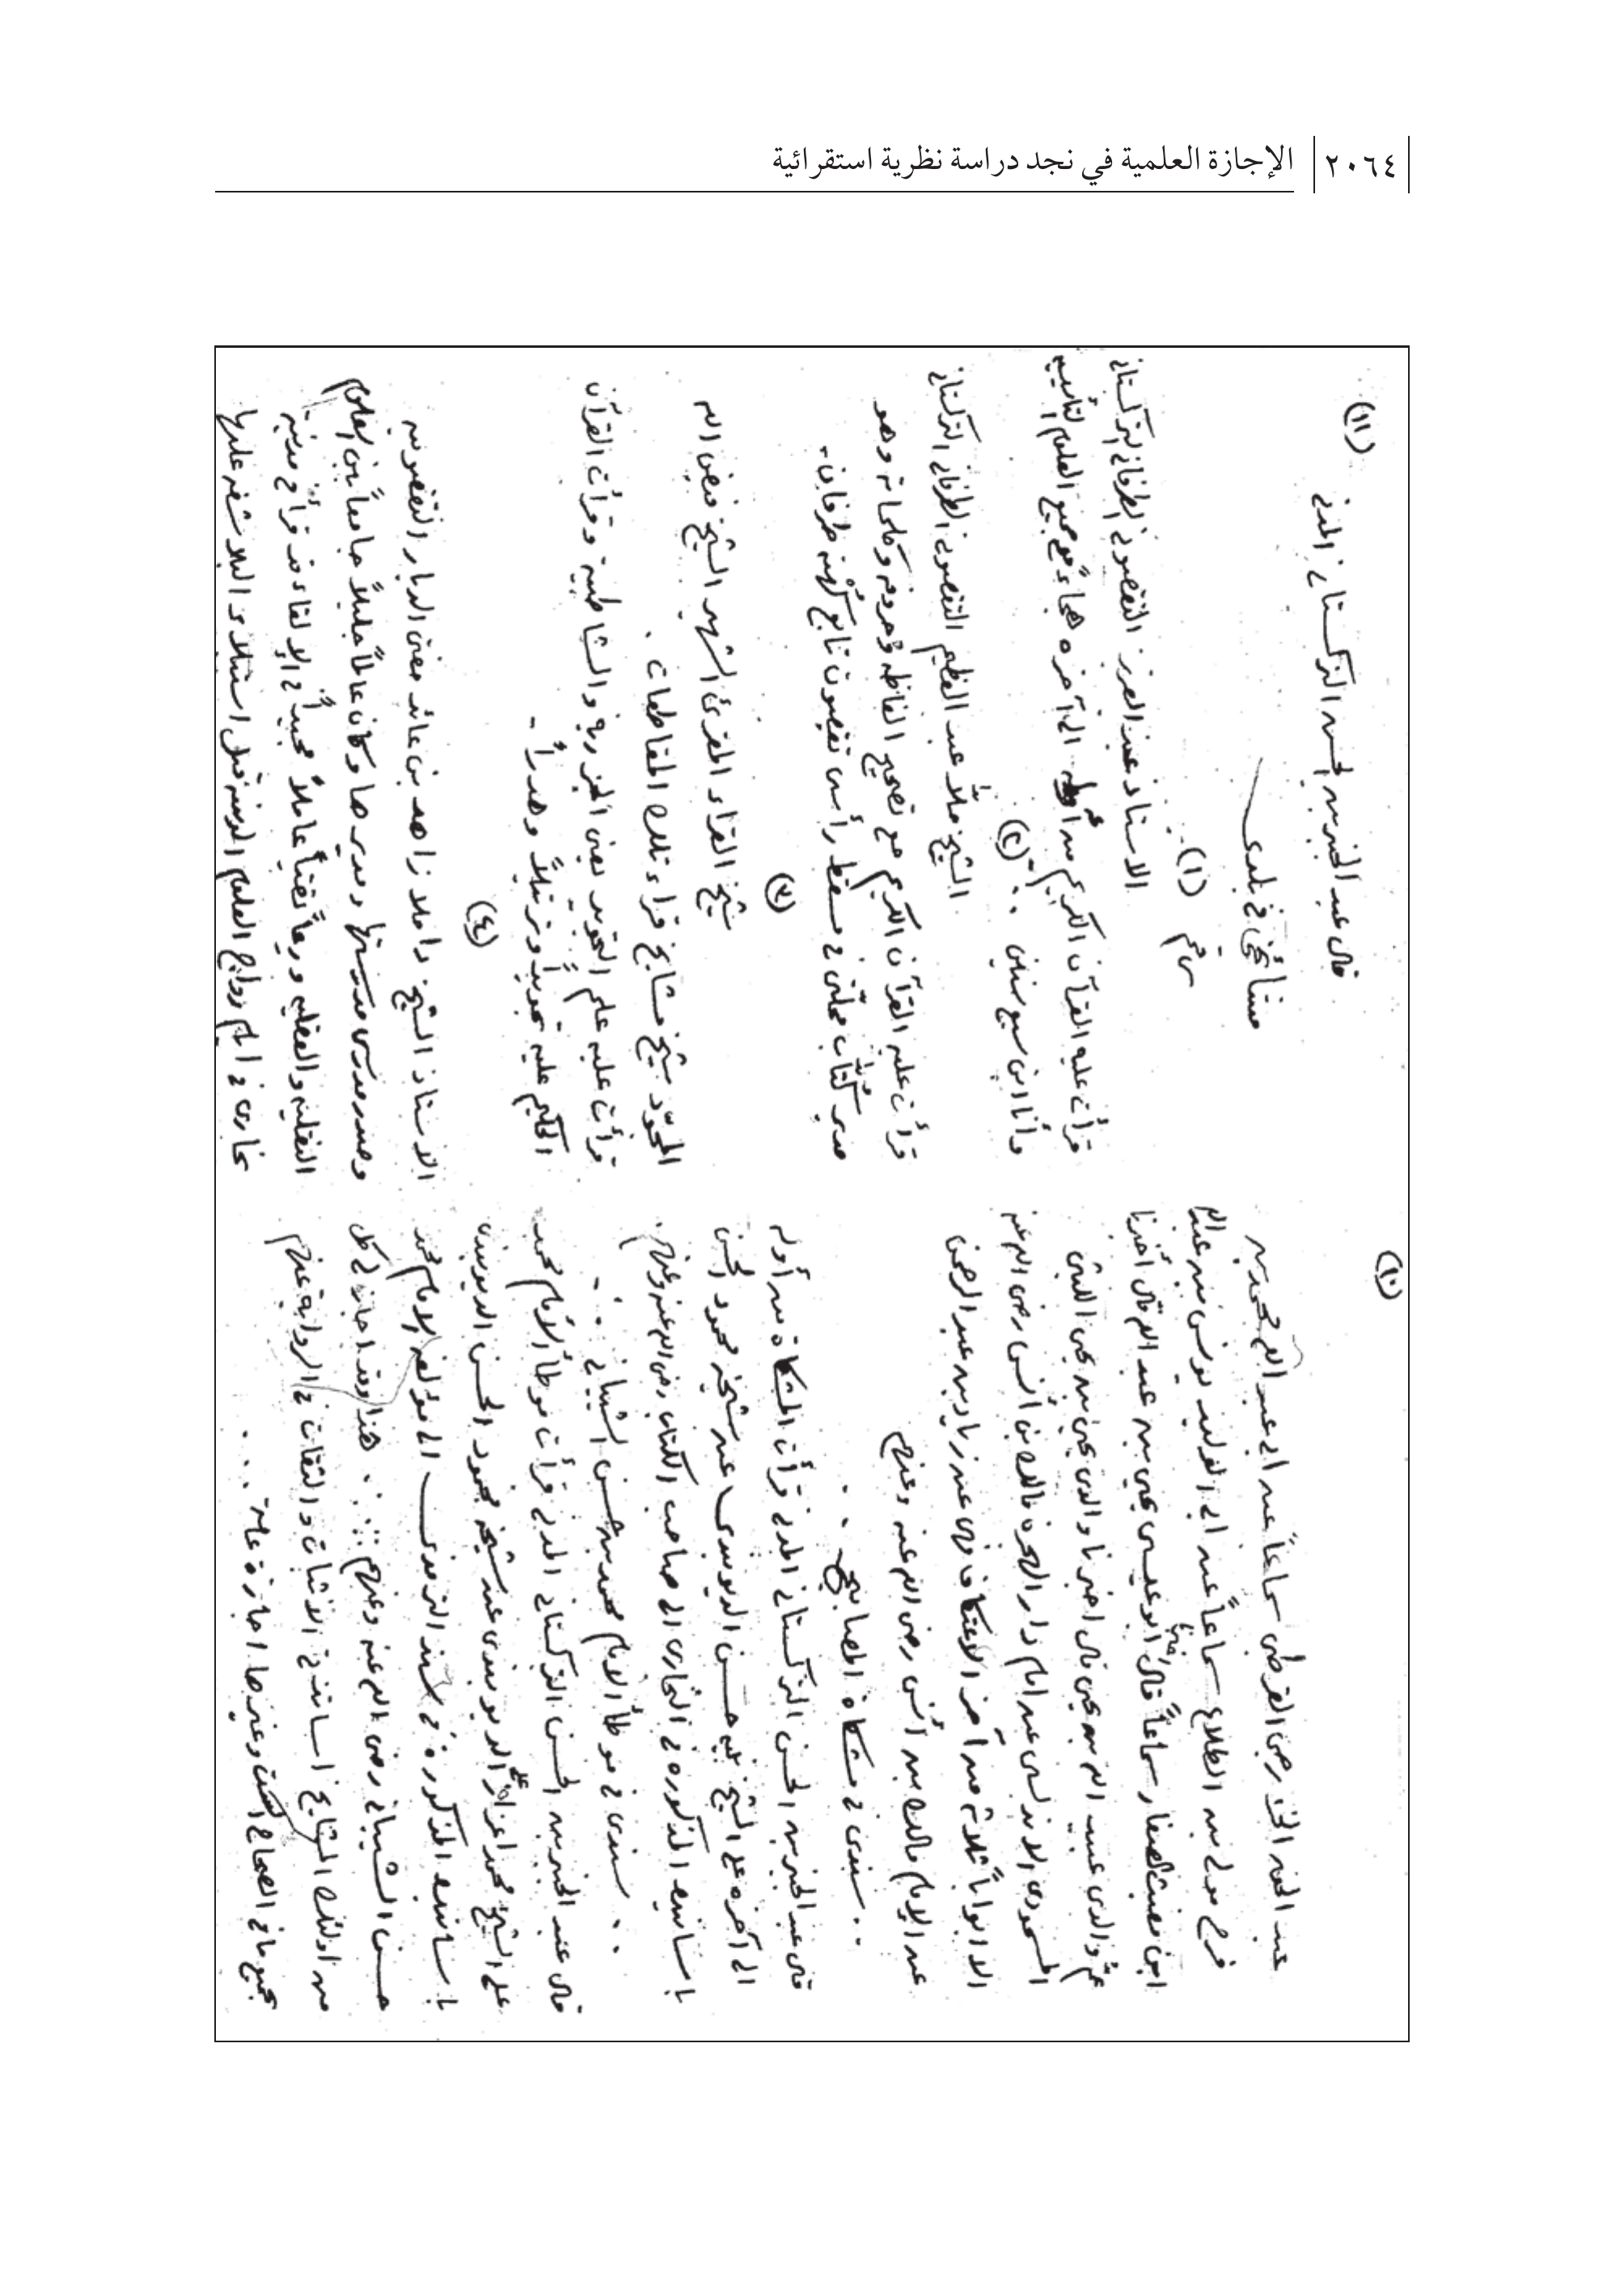 ٢٠٦٤ الإجازة العلمية في نجد دراسة نظرية استقرائية
(١٠)
عبد الحق الخزرجي القرطبي سماعاً عن ابي عبد الله محمد بن
فرج مولى بن الطلاع سماعاً عن ابي الوليد يونس بن عبد الله
ابن مغيث الصفار سماعاً قال ابو عيسى يحيى بن عبد الله قال أخبرنا
عم والدي عبيد الله بن يحيى قال اخبرنا والدي يحيى بن يحيى الليثي
المصمودي الاندلسي عن امام دار الهجرة مالك بن أنس رضي الله عنه
الا ابواباً ثلاثة من آخر الاعتكاف فهي عن زياد بن عبد الرحمن
عن الإمام مالك بن أنس رضي الله عنه وعنهم
سندي في مشكاة المصابيح
قال عبد الخبير بن الحسن التركستاني المدني قرأت المشكاة من أوله
الى آخره على الشيخ حسن الديوبندي عن شيخه محمود الحسن
بإسانيده المذكورة في البخاري الى صاحب الكتاب رضي الله عنه وعنهم
سندي في موطأ الامام محمد بن حسن الشيباني
قال عبد الخبير بن الحسن التركستاني المدني قرأت موطأ الأمام محمد
على الشيخ محمد اعزاز علي الديوبندي عن شيخه محمود الحسن الديوبندي
بإسانيده المذكورة في سند الترمذي الى مؤلفه الإمام محمد
حسن الشيباني رضي الله عنه وعنهم . هذا وقد اجازني كل
من اولئك المشايخ اساتذتي الاثبات والثقات في الرواية عنهم
بجميع ما في الصحاح الست وغيرها اجازة عامة
(١١)
قال عبد الخبير بن الحسن التركستاني المدني
مشائخي في بلدي
(١)
الاستاذ عبد العزيز القصوني الطرفاني التركستاني
قرأت عليه القرآن الكريم من أوله الى آخره هجاءً مع جميع العلوم
وأنا ابن سبع سنين
(٢)
الشيخ ملا عبد العظيم الطرفاني التركستاني
قرأت عليه القرآن الكريم مع تصحيح الفاظه وحروفه وكلماته وهو
في مسقط رأسي
(٣)
شيخ القراء المقرئ الشهير الشيخ فيض الله
المجوّد شيخ مشايخ قراء تلك المقاطعات
قرأت عليه علم التجويد يعني الجزرية والشاطبية وقرأت القرآن
الحكيم عليه تجويداً وترتيلاً وحدراً
(٤)
الاستاذ الشيخ داملا زاهد بن عائد مفتي الديار
وصدر مدرسي مدرستها ومديرها وكان عالماً جليلاً جامعاً بين العلوم
النقلية والعقلية ورعاً تقياً عاملاً مجيداً في الإلقاء قد قرأ في مدينة
بخارى في ايام رواج العلوم الدينية قبل استيلاء البلاشفة عليها